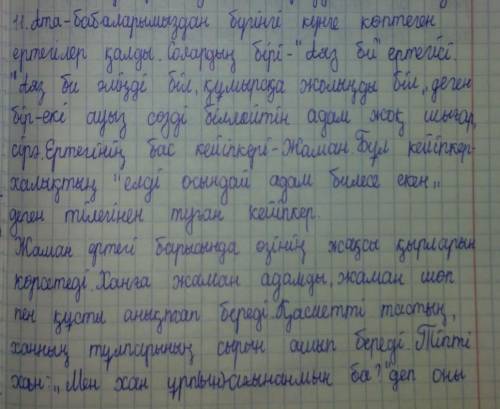 11. Ата-бабаларымыздан бүгінгі күнге көптеген
ертегілер қалды. Солардың бірі-"Аяз би" ертегісі.
"Аяз би әліңді біл, құмырсқа жолыңды біл" деген
бір-екі ауыз сөзді білмейтін адам жоқ шығар,
сірә. Ертегінің бас кейіпкері-Жаман. Бұл кейіпкер-
халықтың "елді осындай адам билесе екен"
деген тілегінен туған кейіпкер.
Жаман ертегі барысында өзінің жақсы қырларын
көрсетеді. Ханға жаман адамды, жаман шөп
пен құсты анықтап береді. Қасиетті тастың,
ханның тұлпарының сырын ашып береді. Тіпті
хан: "Мен хан ұрпағынанмын ба?" деп оны